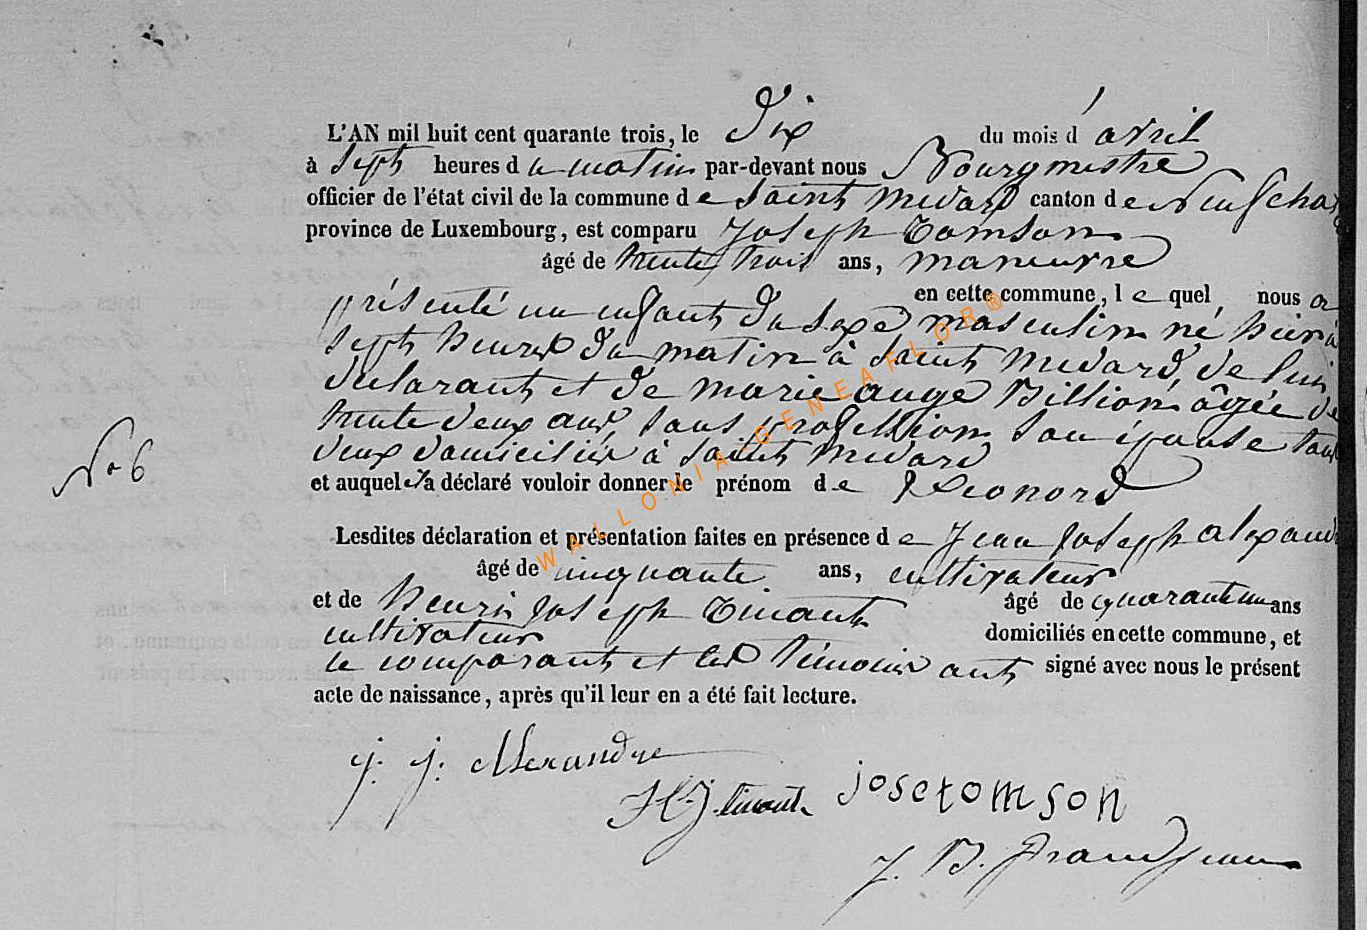 L'AN mil huit cent quarante trois, le Dix du mois d'avril
à Sept heures du matin par-devant nous Bourgmestre
officier de l'état civil de la commune de Saint Medard canton de Neufchat
province de Luxembourg, est comparu Joseph Tomson
âgé de trente trois ans, maneuvre
en cette commune, lequel nous a
présenté un enfant du sexe masculin né hier à
Sept heures du matin à Saint Medard, de lui
declarant et de marie ange Billion, âgée de
trente deux ans sans profession son épouse tous
deux domiciliés à Saint Medard
et auquel il a déclaré vouloir donner le prénom de Leonord
No 6
Lesdites déclaration et présentation faites en présence de Jean Joseph alexand
âgé de cinquante ans, cultivateur
et de henri Joseph Tinant âgé de quarante un ans
cultivateur domiciliés en cette commune, et
le comparant et les témoins ont signé avec nous le présent
acte de naissance, après qu'il leur en a été fait lecture.
j. j. Alexandre
H. J. tinant josetomson
J. B. Grandjean
WALLONIA-GENEAFLOR®